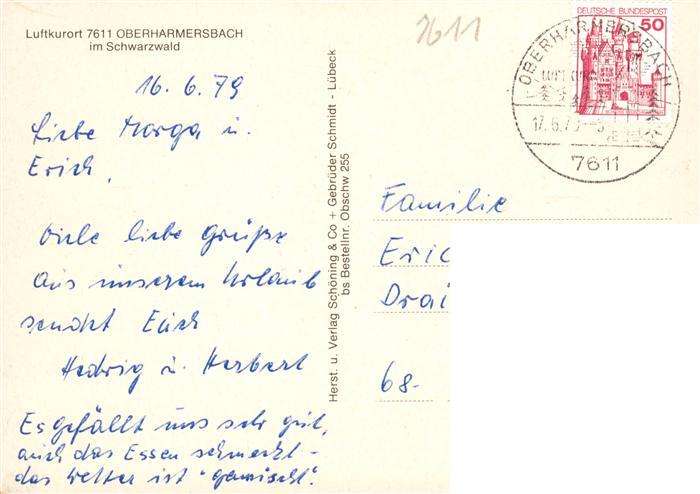 Luftkurort 7611 OBERHARMERSBACH
im Schwarzwald
7611
16.6.79
Liebe Marga u.
Erich,
Viele liebe Grüße
aus unserem Urlaub
sendet Euch
Hedwig u. Herbert
Es gefällt uns sehr gut,
auch das Essen schmeckt -
das Wetter ist "gemischt".
Herst. u. Verlag Schöning & Co + Gebrüder Schmidt - Lübeck
bs Bestellnr. Obschw 255
DEUTSCHE BUNDESPOST
50
OBERHARMERSBACH
17.6.79
7611
Familie
Eric
Drai
68-